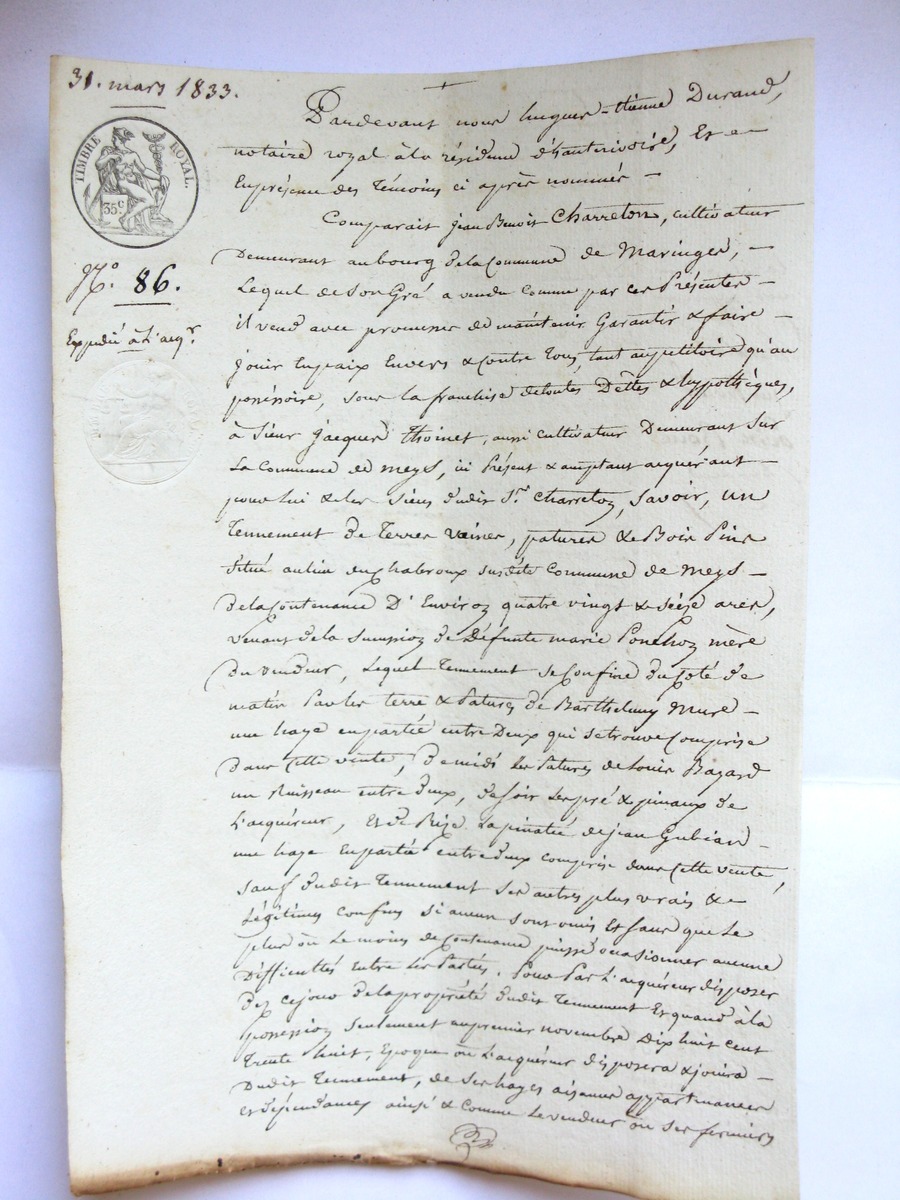 31. mars 1833.
TIMBRE ROYAL.
35c
No. 86.
Expédié à l'acqr.
Pardevant nous hugues-Etienne Durand,
notaire royal à la résidence d'hauterivoire, Et
En présence des Témoins ci après nommés
Comparait jean Benoit Charreton, cultivateur
Demeurant au bourg de la Commune de Maringes,
Lequel de Son Gré a vendu comme par ces Présentes
il vend avec promesse de maintenir Garantir & faire
jouir En paix Envers & contre Tous, tant au petitoire qu'au
posséssoire, sous la franchise de toutes Dêttes & hypothèques,
à Sieur jacques Thoinet, aussi cultivateur Demeurant Sur
La Commune de meys, ici Présent & acceptant acquérant
pour lui & les Siens dudit Sr. Charreton, Savoir, un
Tennement de Terres vaines, patures & Bois Pins
Situé au lieu du Chabroux susdite Commune de meys
De la Contenance D'Environ quatre vingt & seize ares,
venant de la Succession de Défunte marie Ponchon mère
Du vendeur, Lequel Tennement se Confine du Coté de
matin Par les terre & Patures de Barthelemy Mure
une haye en partie entre Deux qui se trouve Comprise
Dans cette vente, De midi les Patures de Louis Bazard
un Ruisseau entre deux, de Soir Les pré & pinaux de
L'acquéreur, Et de Bize La pinatée de jean Gubian
une haye En partie entre deux comprise dans Cette vente,
sauf dudit Tennement Ses autres plus vrais &
Légitimes Confins Si aucun sont omis Et Sans que Le
plus ou Le moins de Contenance puisse occasionner aucune
Difficultés Entre Les Parties. Pour Par L'acquéreur disposer
Dez ce jour de la propriété dudit Tennement Et quand à la
possession Seulement au premier novembre Dix huit cent
Trente huit, Epoque où L'acquéreur disposera & jouira
Dudit Tennement, de Ses hayes aisances appartenances
et dépendances ainsi & Comme Le vendeur ou Ses fermiers